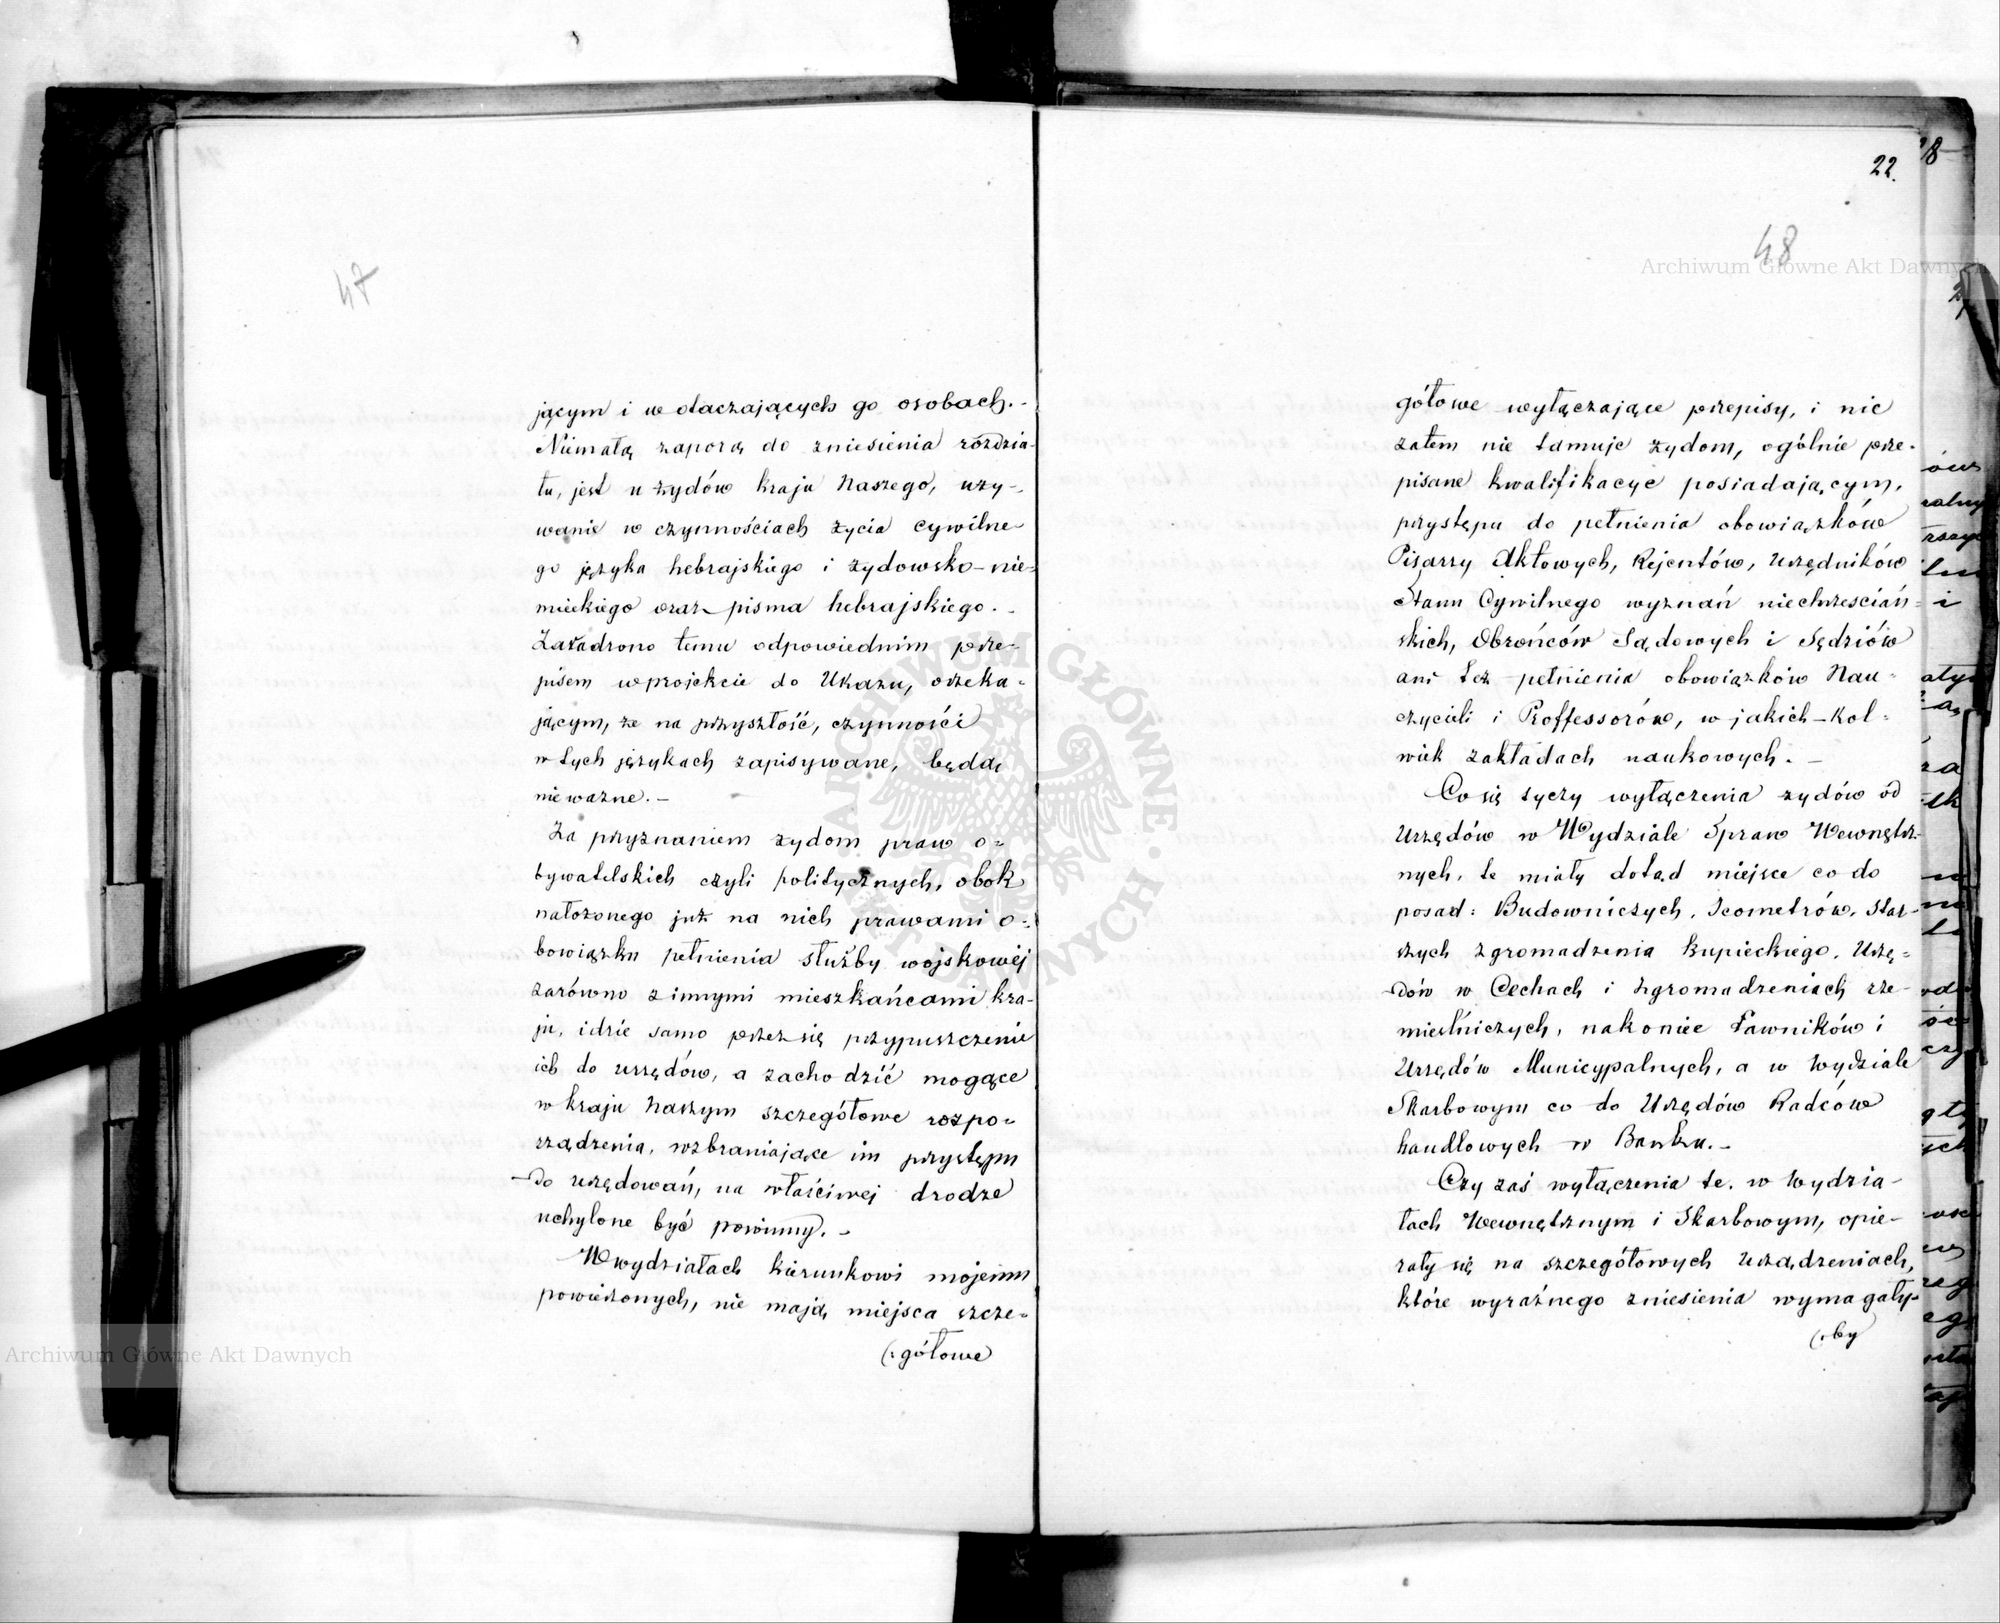 47
jącym i w otaczających go osobach.-
Niemałą zaporą do zniesienia rozdzia-
łu, jest u żydów kraju Naszego, uży-
wanie w czynnościach życia cywilne-
go języka hebrajskiego i żydowsko-nie-
mieckiego oraz pisma hebrajskiego.-
Zaradzono temu odpowiednim prze-
pisem w projekcie do Ukazu, orzeka-
jącym, że na przyszłość, czynności
w tych językach zapisywane, będą
nieważne.-
Za przyznaniem żydom praw o-
bywatelskich czyli politycznych, obok
nałożonego już na nich prawami o-
bowiązku pełnienia służby wojskowej
zarówno z innymi mieszkańcami kra-
ju, idzie samo przez się przypuszczenie
ich do urzędów, a zachodzić mogące
w kraju Naszym szczegółowe rozpo-
rządzenia, wzbraniające im przystępu
do urzędowań, na właściwej drodze
uchylone być powinny.-
W wydziałach kierunkowi mojemu
powierzonych, nie mają miejsca szcze-
(:gółowe
22.
48
gółowe wyłączające przepisy, i nic
zatem nie tamuje żydom, ogólnie prze-
pisane kwalifikacye posiadającym,
przystępu do pełnienia obowiązków
Pisarzy Aktowych, Rejentów, Urzędników
Stanu Cywilnego wyznań niechrześciań-
skich, Obrońców Sądowych i Sędziów
ani też pełnienia obowiązków Nau-
czycieli i Proffessorów, w jakich-kol-
wiek zakładach naukowych.-
Co się tyczy wyłączenia żydów od
Urzędów w Wydziale Spraw Wewnętrz-
nych, te miały dotąd miejsce co do
posad: Budowniczych, Jeometrów, Star-
szych zgromadzenia kupieckiego, Urzę-
dów w Cechach i zgromadzeniach rze-
mieślniczych, nakoniec Ławników i
Urzędów Municypalnych, a w Wydziale
Skarbowym co do Urzędów Radców
handlowych w Banku.-
Czy zaś wyłączenia te, w Wydzia-
łach Wewnętrznym i Skarbowym, opie-
rały się na szczegółowych urządzeniach,
które wyraźnego zniesienia wymagały-
(:by
Archiwum Główne Akt Dawnych
Archiwum Główne Akt Dawnych
ARCHIWUM GŁÓWNE AKT DAWNYCH